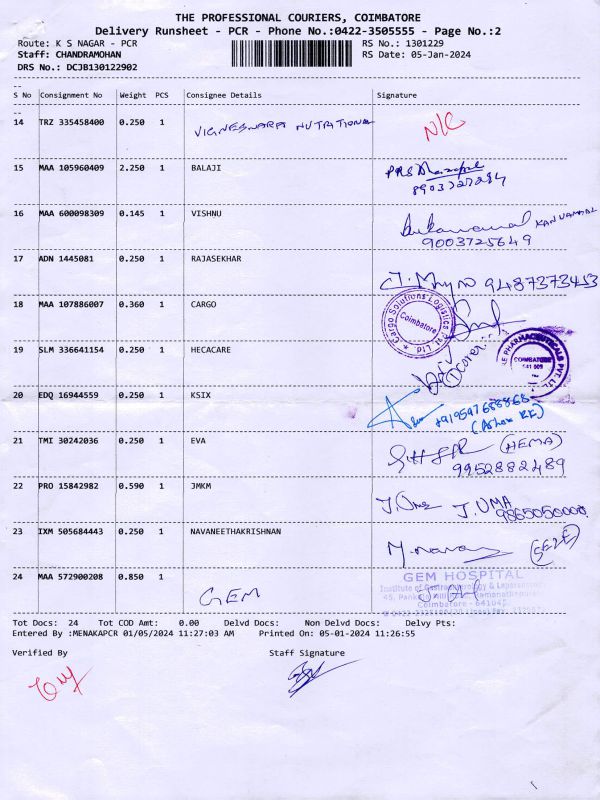 THE PROFESSIONAL COURIERS, COIMBATORE
Delivery Runsheet - PCR - Phone No.:0422-3505555 - Page No.:2
Route: K S NAGAR - PCR RS No.: 1301229
Staff: CHANDRAMOHAN RS Date: 05-Jan-2024
DRS No.: DCJB130122902
S No Consignment No Weight PCS Consignee Details Signature
14 TRZ 335458400 0.250 1 VIGNESWARA NUTRITIONAL N/C
15 MAA 105960409 2.250 1 BALAJI
8903727284
16 MAA 600098309 0.145 1 VISHNU
9003725649
17 ADN 1445081 0.250 1 RAJASEKHAR 9487373453
18 MAA 107886007 0.360 1 CARGO Cargo Solutions Logistics Pvt Ltd Coimbatore
19 SLM 336641154 0.250 1 HECACARE PHARMACEUTICALS PVT. LTD COIMBATORE
20 EDQ 16944559 0.250 1 KSIX
21 TMI 30242036 0.250 1 EVA (HEMA)
9952882489
22 PRO 15842982 0.590 1 JMKM J. UMA
23 IXM 505684443 0.250 1 NAVANEETHAKRISHNAN
24 MAA 572900208 0.850 1 GEM GEM HOSPITAL
Institute of Gastroenterology & Laparoscopic
45, Pankaja Mill Ramanathapuram
Coimbatore - 641045
Tot Docs: 24 Tot COD Amt: 0.00 Delvd Docs: Non Delvd Docs: Delvy Pts:
Entered By :MENAKAPCR 01/05/2024 11:27:03 AM Printed On: 05-01-2024 11:26:55
Verified By Staff Signature